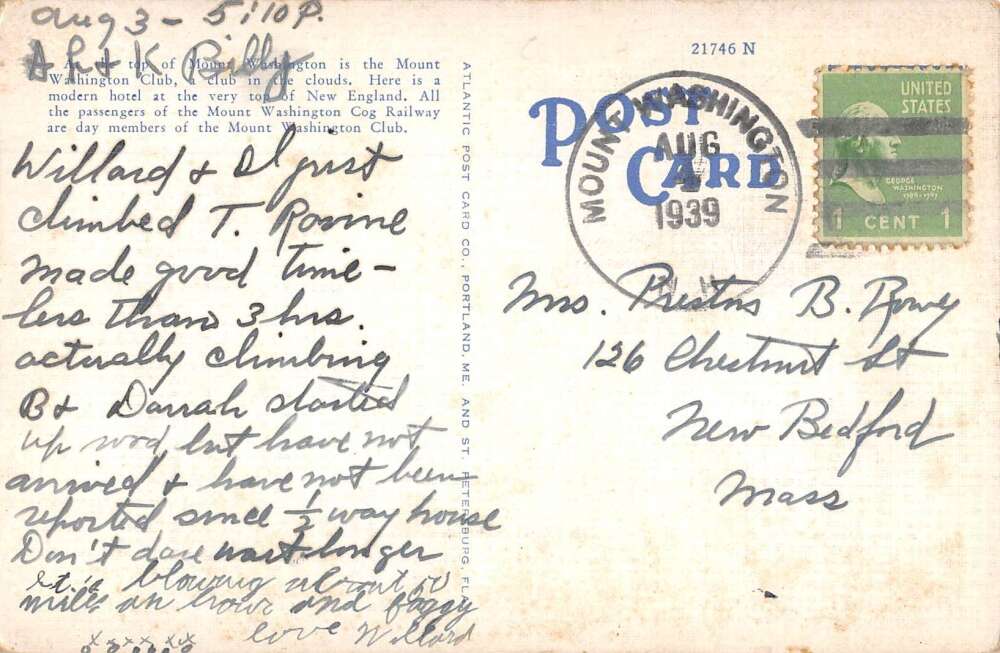 Aug 3 - 5:10 P.
& K Billy
At the top of Mount Washington is the Mount
Washington Club, a club in the clouds. Here is a
modern hotel at the very top of New England. All
the passengers of the Mount Washington Cog Railway
are day members of the Mount Washington Club.
Willard & I just
climbed T. Ravine
made good time -
less than 3 hrs.
actually climbing
B & Darrah started
up road but have not
arrived & have not been
reported since ½ way house
Don't dare wait longer
It's blowing about 50
miles an hour and foggy
love Willard
x x x x x x
o o o o o o
ATLANTIC POST CARD CO., PORTLAND, ME. AND ST. PETERSBURG, FLA.
21746 N
POST
CARD
MOUNT WASHINGTON
AUG
1939
N.H.
UNITED
STATES
GEORGE
WASHINGTON
1789-1797
1 CENT 1
Mrs. Preston B. Rowe
126 Chestnut St
New Bedford
Mass